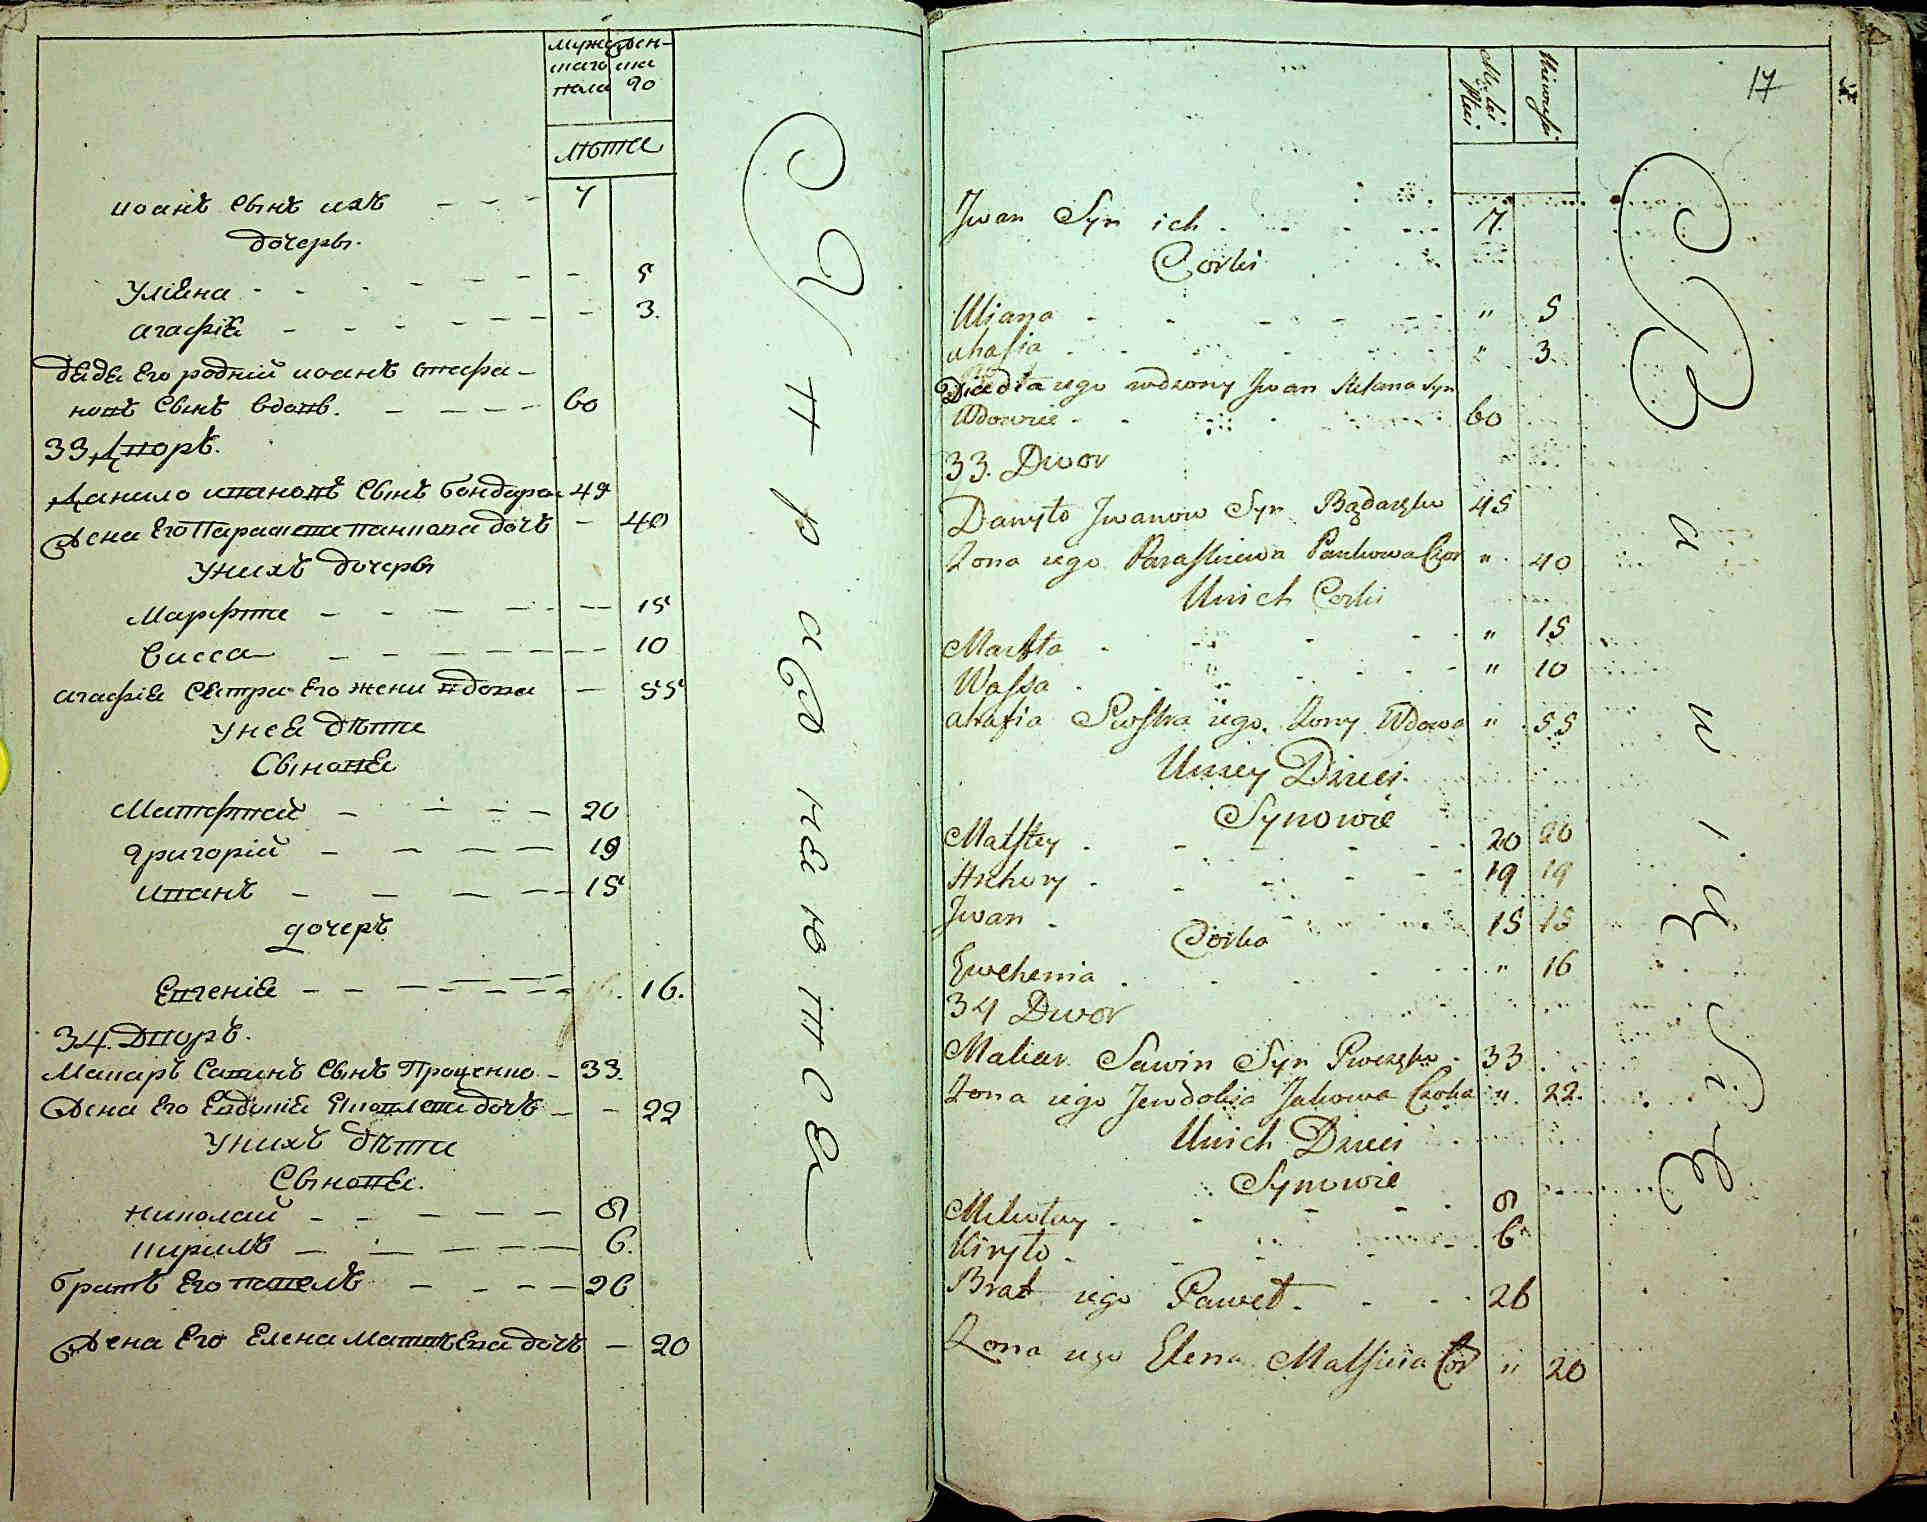 мужеска женска
того ска
пола го
лѣта
иоанъ сынъ ихъ - - - 7
дочеры.
улїѧна - - - - - - 5
агафїѧ - - - - - - 3.
дѧдѧ его родній иоанъ стефа-
новъ сынъ вдовъ. - - - - 60
33 дворъ.
Данило ивановъ сынъ бондаре 49
Жена его параскева панкова дочъ - 40
унихъ дочеры
Марфта - - - - - - 15
Васса - - - - - - - 10
агафїѧ сестра его жени вдова - 55
унеѧ дѣти
Сыновѧ
Матфтей - - - - 20
григорій - - - - 19
иванъ - - - - 15
дочеръ
Евгенїѧ - - - - - - - 16.
34. Дворъ.
Макаръ Савинъ сынъ Проценко - 33.
Жена его Евдокіѧ Яковлева дочъ - - 22
унихъ дѣти
Сыновѧ.
николай - - - - - 8
кирилъ - - - - - 6.
братъ его павелъ - - - - 26
Жена его Елена матвѣева дочъ - 20
Управлѧюща
17
Jwan Syn ich . - - - ... 7.
Corki
Uliana - - - - - - " 5
ahafia . - - - - - " 3
Diedia iego rodzony Jwan Stefana Syn
Wdowiec - - - - - 60
33. Dwor
Danyło Jwanow Syn Bądaręko 45
Żona iego Paraskiewa Pankowa Cor " . 40
Unich Corki
Marfta - - - - - " 15
Wassa - - - - - " 10
ahafia Siostra iego. Żony Wdowa " . 55
Uniey Dzieci.
Synowie
Matftey - - - - - 20 20
Hrehory - - - - - 19 19
Jwan - 15 15
Corka
Ewehenia . - - - - " 16
34 Dwor
Makar Sawin Syn Proczęko - 33
Żona iego Jewdokia Jakowa Corka " . 22.
Unich Dzieci
Synowie
Mikołay . - - - - 8
Kiryło - - - - - 6
Brat iego Paweł. - - - 26
Żona iego Elena Matfieia Cor " 20